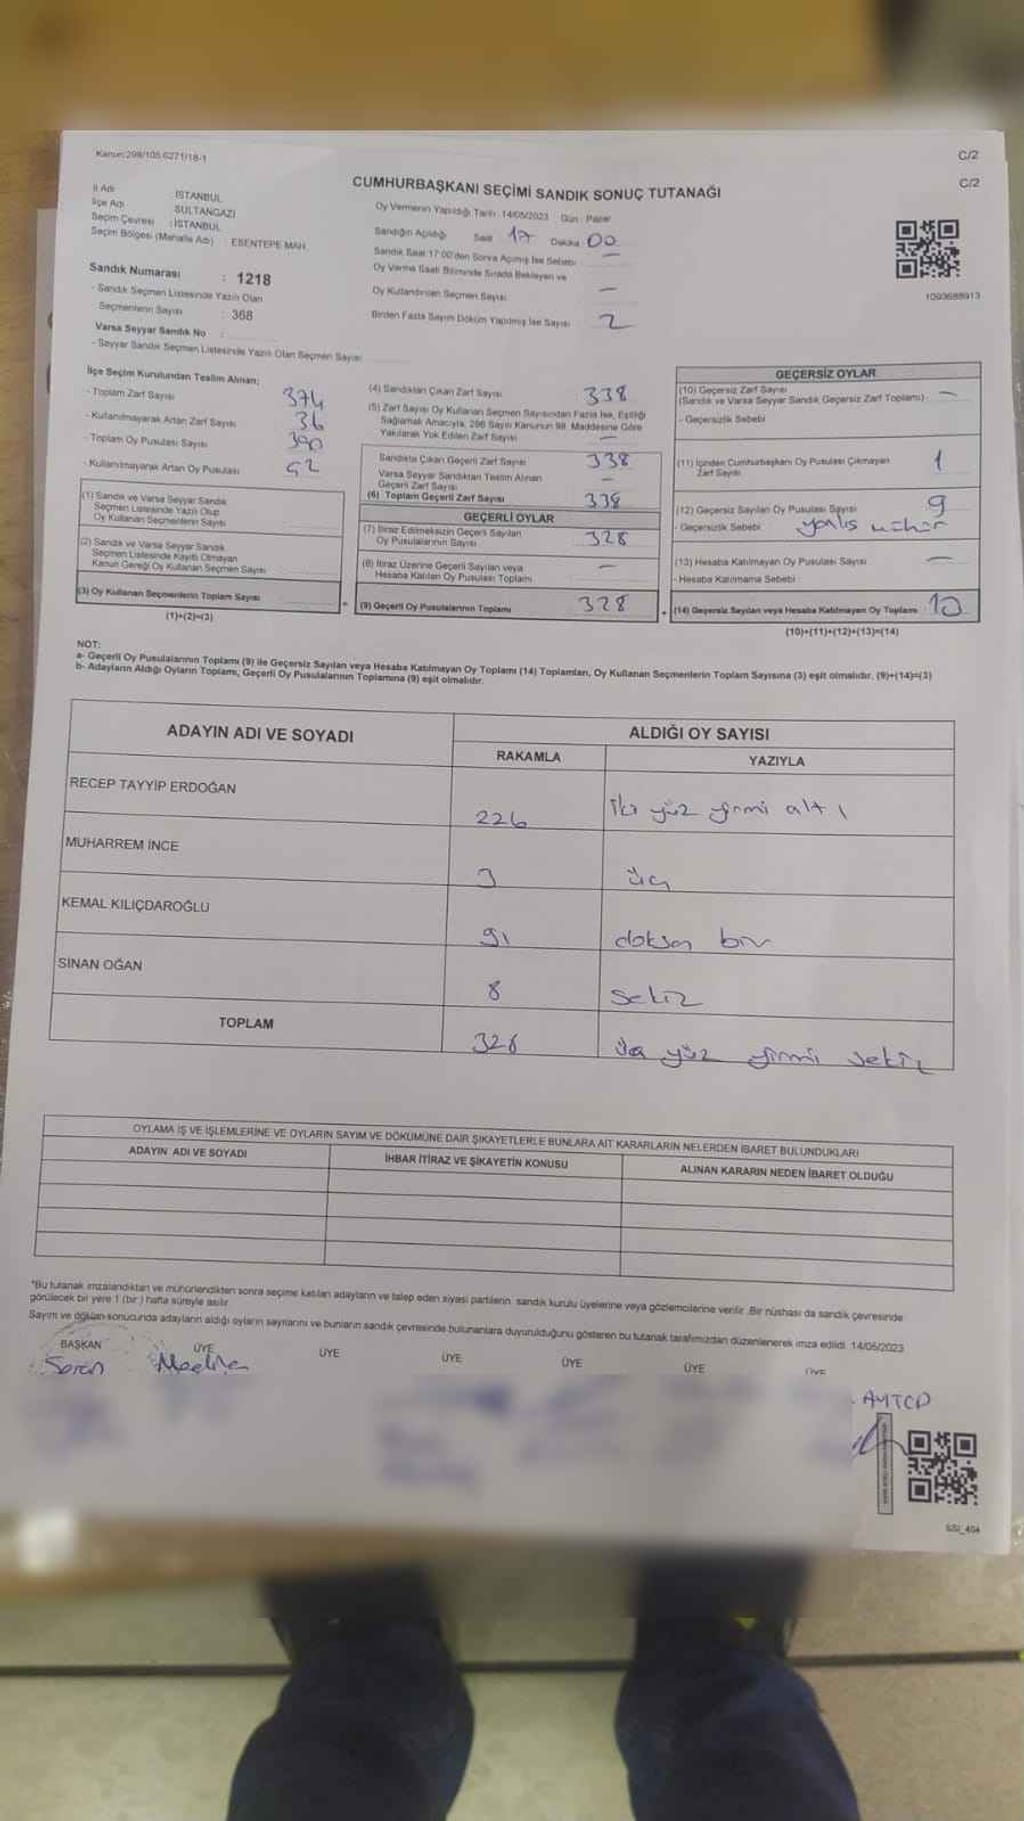 Kanun:298/105,6271/18-1
C/2
C/2
CUMHURBAŞKANI SEÇİMİ SANDIK SONUÇ TUTANAĞI
İl Adı : İSTANBUL
İlçe Adı : SULTANGAZİ
Seçim Çevresi : İSTANBUL
Seçim Bölgesi (Mahalle Adı) : ESENTEPE MAH.
Oy Vermenin Yapıldığı Tarih :14/05/2023 Gün : Pazar
Sandığın Açıldığı Saat 17 Dakika 00
Sandık Saat 17:00'den Sonra Açılmış İse Sebebi —
Oy Verme Saati Bitiminde Sırada Bekleyen ve
Oy Kullandırılan Seçmen Sayısı —
Birden Fazla Sayım Döküm Yapılmış İse Sayısı 2
1093688913
Sandık Numarası : 1218
- Sandık Seçmen Listesinde Yazılı Olan
Seçmenlerin Sayısı : 368
Varsa Seyyar Sandık No :
- Seyyar Sandık Seçmen Listesinde Yazılı Olan Seçmen Sayısı
İlçe Seçim Kurulundan Teslim Alınan;
- Toplam Zarf Sayısı 374
- Kullanılmayarak Artan Zarf Sayısı 36
- Toplam Oy Pusulası Sayısı 390
- Kullanılmayarak Artan Oy Pusulası 52
(1) Sandık ve Varsa Seyyar Sandık
Seçmen Listesinde Yazılı Olup
Oy Kullanan Seçmenlerin Sayısı
(2) Sandık ve Varsa Seyyar Sandık
Seçmen Listesinde Kayıtlı Olmayan
Kanun Gereği Oy Kullanan Seçmen Sayısı
(3) Oy Kullanan Seçmenlerin Toplam Sayısı
(1)+(2)=(3)
(4) Sandıktan Çıkan Zarf Sayısı 338
(5) Zarf Sayısı Oy Kullanan Seçmen Sayısından Fazla İse, Eşitliği
Sağlamak Amacıyla, 298 Sayılı Kanunun 98. Maddesine Göre
Yakılarak Yok Edilen Zarf Sayısı —
Sandıkta Çıkan Geçerli Zarf Sayısı 338
Varsa Seyyar Sandıktan Teslim Alınan
Geçerli Zarf Sayısı —
(6) Toplam Geçerli Zarf Sayısı 338
GEÇERLİ OYLAR
(7) İtiraz Edilmeksizin Geçerli Sayılan
Oy Pusulalarının Sayısı 328
(8) İtiraz Üzerine Geçerli Sayılan veya
Hesaba Katılan Oy Pusulası Toplamı —
= (9) Geçerli Oy Pusulalarının Toplamı 328
GEÇERSİZ OYLAR
(10) Geçersiz Zarf Sayısı
(Sandık ve Varsa Seyyar Sandık Geçersiz Zarf Toplamı) —
- Geçersizlik Sebebi
(11) İçinden Cumhurbaşkanı Oy Pusulası Çıkmayan
Zarf Sayısı 1
(12) Geçersiz Sayılan Oy Pusulası Sayısı 9
- Geçersizlik Sebebi yanlış mühür
(13) Hesaba Katılmayan Oy Pusulası Sayısı —
- Hesaba Katılmama Sebebi
+ (14) Geçersiz Sayılan veya Hesaba Katılmayan Oy Toplamı 10
(10)+(11)+(12)+(13)=(14)
NOT:
a- Geçerli Oy Pusulalarının Toplamı (9) ile Geçersiz Sayılan veya Hesaba Katılmayan Oy Toplamı (14) Toplamları, Oy Kullanan Seçmenlerin Toplam Sayısına (3) eşit olmalıdır. (9)+(14)=(3)
b- Adayların Aldığı Oyların Toplamı, Geçerli Oy Pusulalarının Toplamına (9) eşit olmalıdır.
ADAYIN ADI VE SOYADI
ALDIĞI OY SAYISI
RAKAMLA YAZIYLA
RECEP TAYYİP ERDOĞAN 226 iki yüz yirmi altı
MUHARREM İNCE 3 üç
KEMAL KILIÇDAROĞLU 91 doksan bir
SİNAN OĞAN 8 sekiz
TOPLAM 328 üç yüz yirmi sekiz
OYLAMA İŞ VE İŞLEMLERİNE VE OYLARIN SAYIM VE DÖKÜMÜNE DAİR ŞİKAYETLERLE BUNLARA AİT KARARLARIN NELERDEN İBARET BULUNDUKLARI
ADAYIN ADI VE SOYADI İHBAR İTİRAZ VE ŞİKAYETİN KONUSU ALINAN KARARIN NEDEN İBARET OLDUĞU
*Bu tutanak imzalandıktan ve mühürlendikten sonra seçime katılan adayların ve talep eden siyasi partilerin sandık kurulu üyelerine veya gözlemcilerine verilir. Bir nüshası da sandık çevresinde
görülecek bir yere 1 (bir) hafta süreyle asılır.
Sayım ve döküm sonucunda adayların aldığı oyların sayılarını ve bunların sandık çevresinde bulunanlara duyurulduğunu gösteren bu tutanak tarafımızdan düzenlenerek imza edildi. 14/05/2023
BAŞKAN ÜYE ÜYE ÜYE ÜYE ÜYE ÜYE